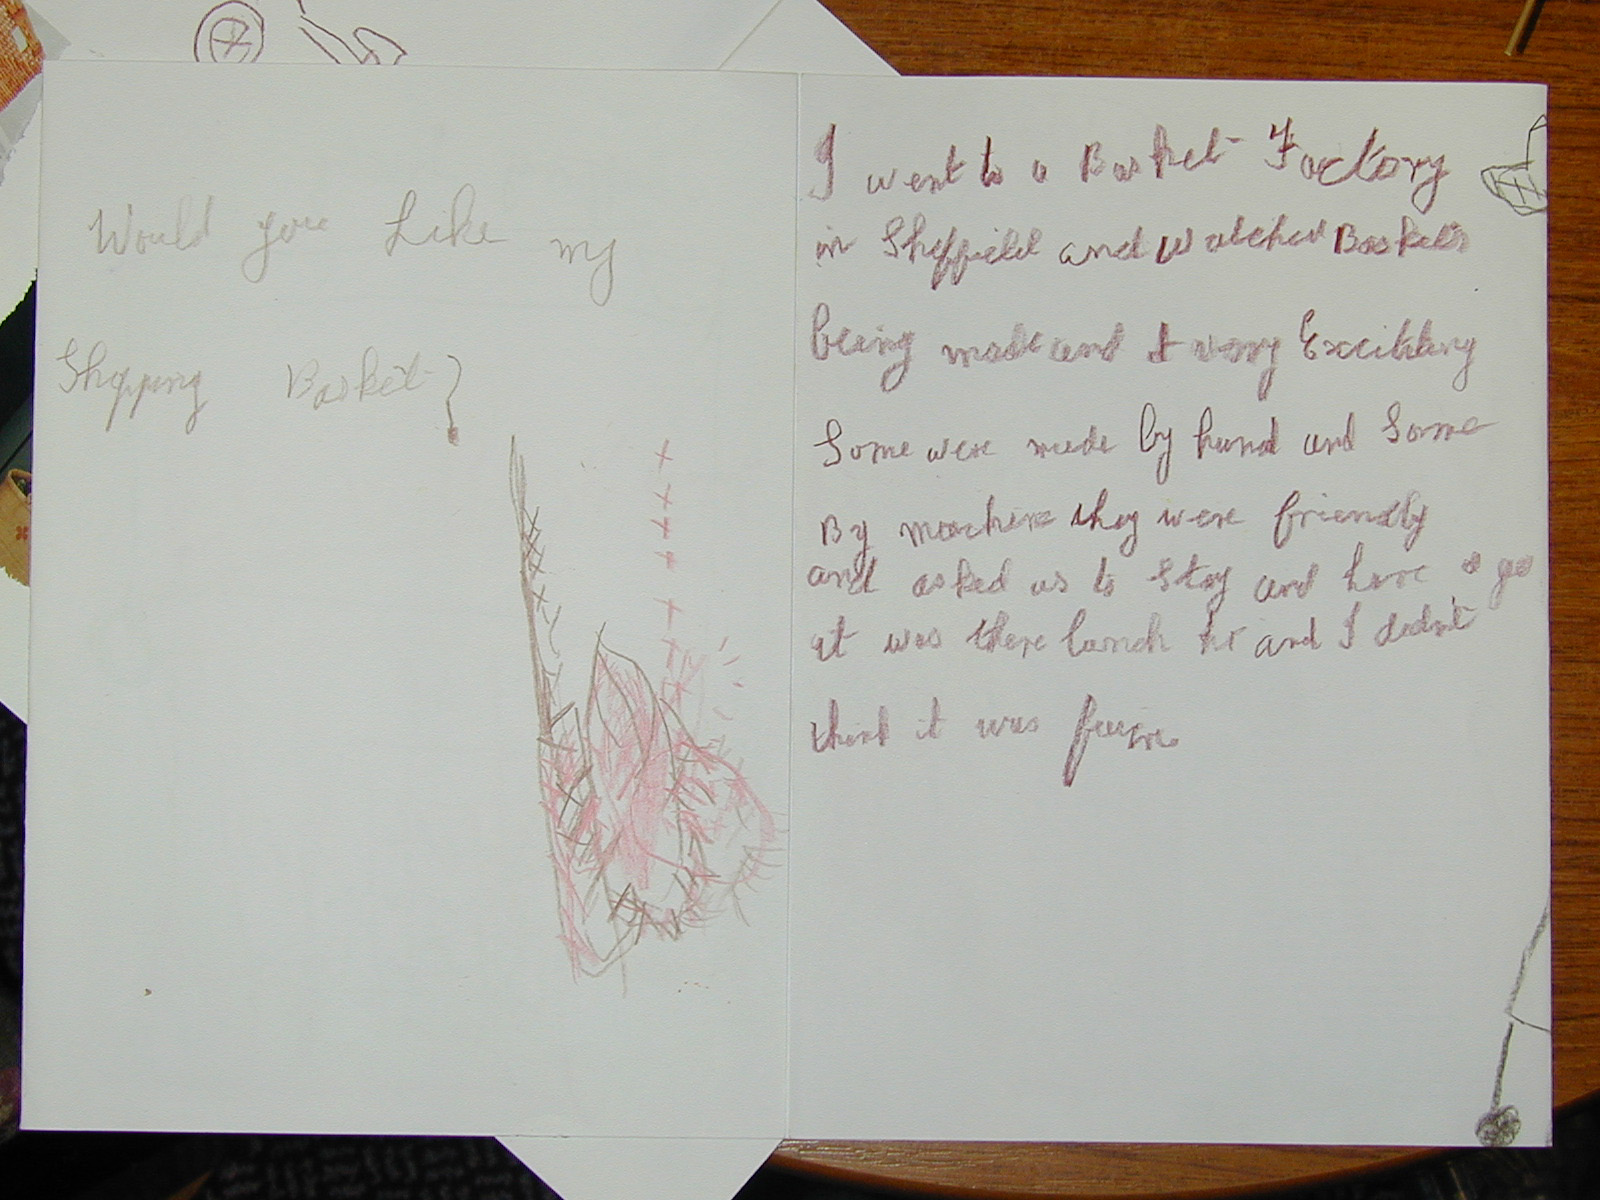 Would you Like my
Shopping Basket?
I went to a Basket Factory
in Sheffield and Watched Baskets
being made and I very Excitting
Some were made by hand and Some
By machine they were friendly
and asked us to Stay and have a go
it was there lunch hr and I didn't
think it was